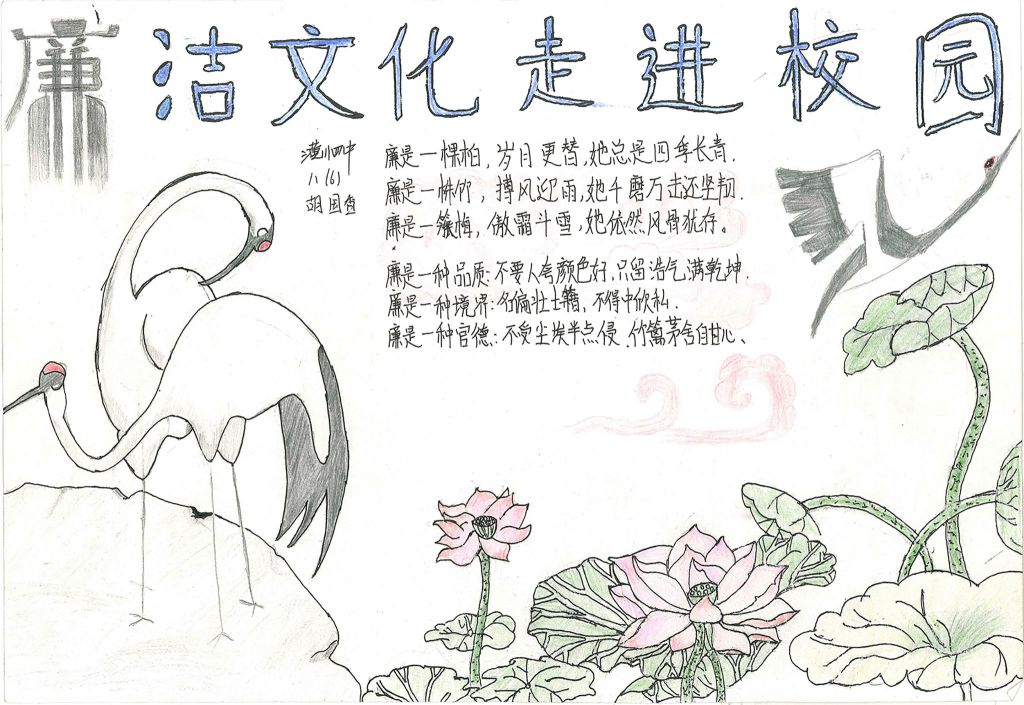 廉洁文化走进校园
黄州中
八(6)
胡国
廉是一棵柏，岁月更替，她总是四季长青.
廉是一株竹，搏风迎雨，她千磨万击还坚韧.
廉是一簇梅，傲霜斗雪，她依然风骨犹存。
廉是一种品质：不要人夸颜色好，只留浩气满乾坤.
廉是一种境界：不得中饱私.
廉是一种官德：不受尘埃半点侵.竹篱茅舍自甘心、